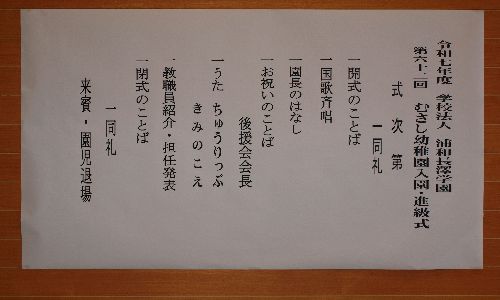 令和七年度　学校法人　浦和長澤学園
第六十二回　むさし幼稚園入園・進級式
式次第
一同礼
一開式のことば
一国歌斉唱
一園長のはなし
一お祝いのことば
後援会会長
一うた　ちゅうりっぷ
きみのこえ
一教職員紹介・担任発表
一閉式のことば
一同礼
来賓・園児退場